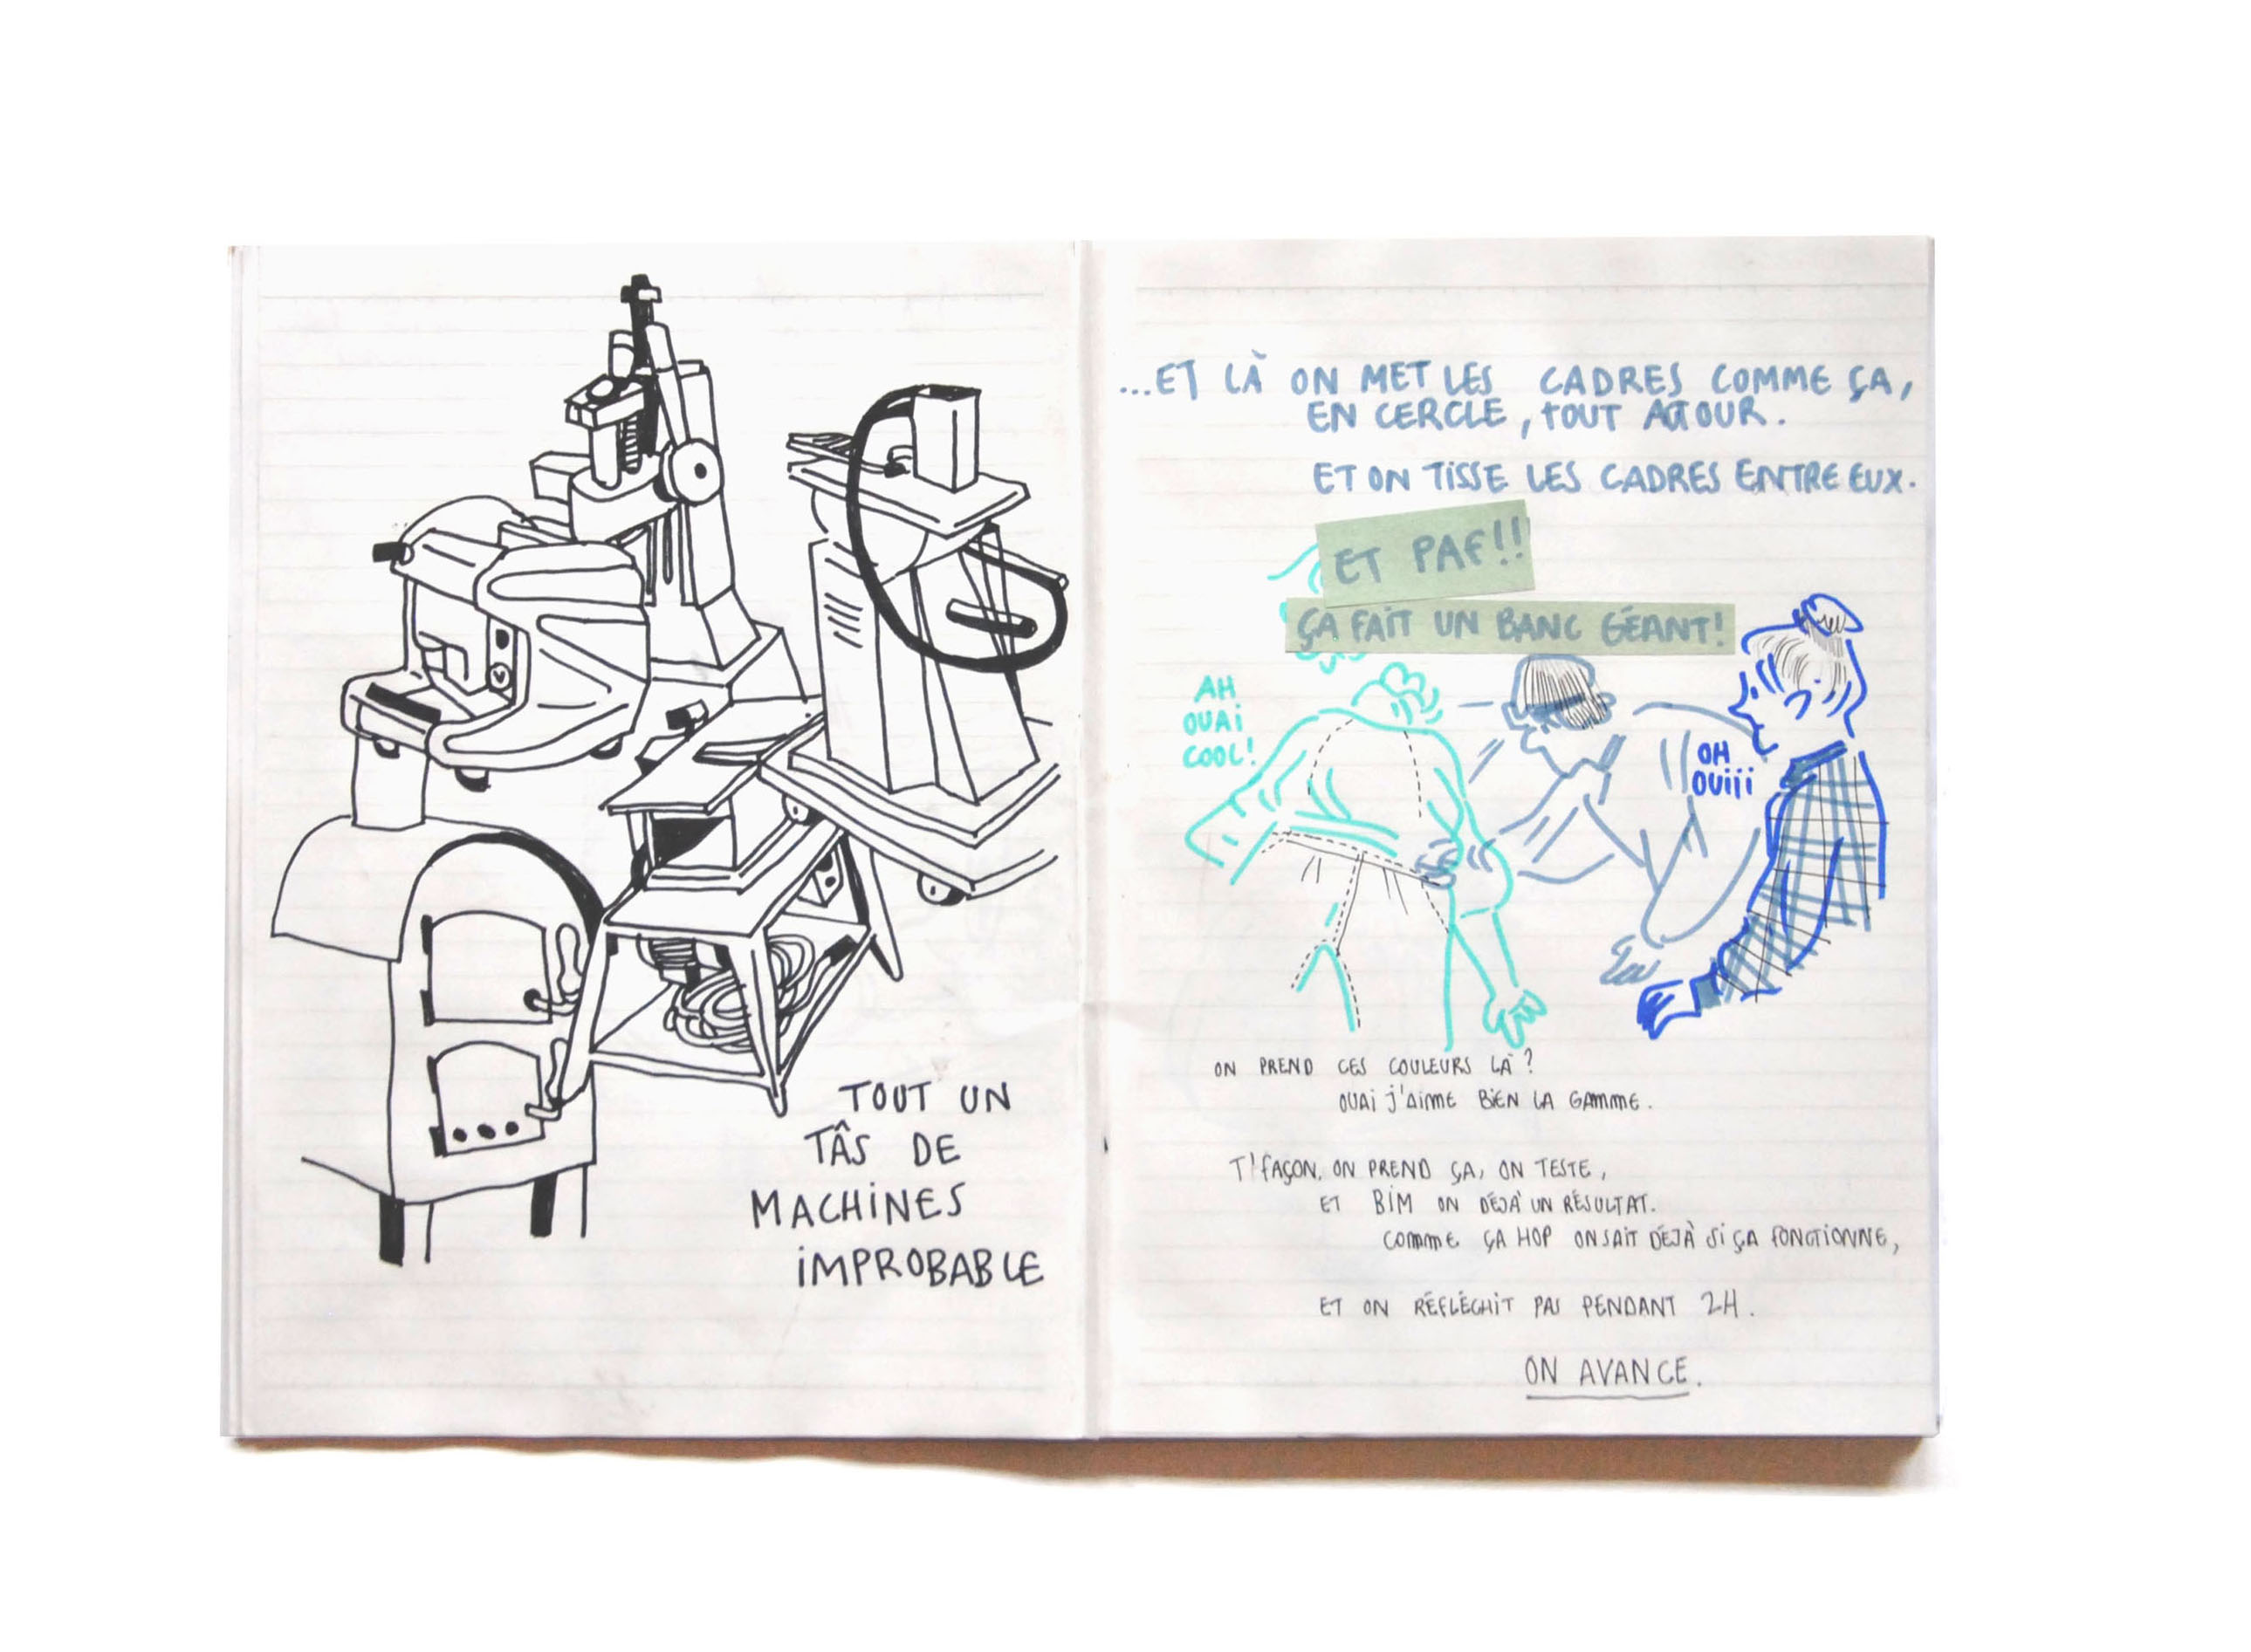 TOUT UN
TÂS DE
MACHINES
IMPROBABLE
...ET LÀ ON MET LES CADRES COMME ÇA,
EN CERCLE, TOUT AUTOUR.
ET ON TISSE LES CADRES ENTRE EUX.
ET PAF!!
ÇA FAIT UN BANC GÉANT!
AH
OUAI
COOL!
OH
OUIII
ON PREND CES COULEURS LÀ?
OUAI J'AIME BIEN LA GAMME.
T'FAÇON, ON PREND ÇA, ON TESTE,
ET BIM ON DÉJÀ UN RÉSULTAT.
COMME ÇA HOP ON SAIT DÉJÀ SI ÇA FONCTIONNE,
ET ON RÉFLÉCHIT PAS PENDANT 2H.
ON AVANCE.